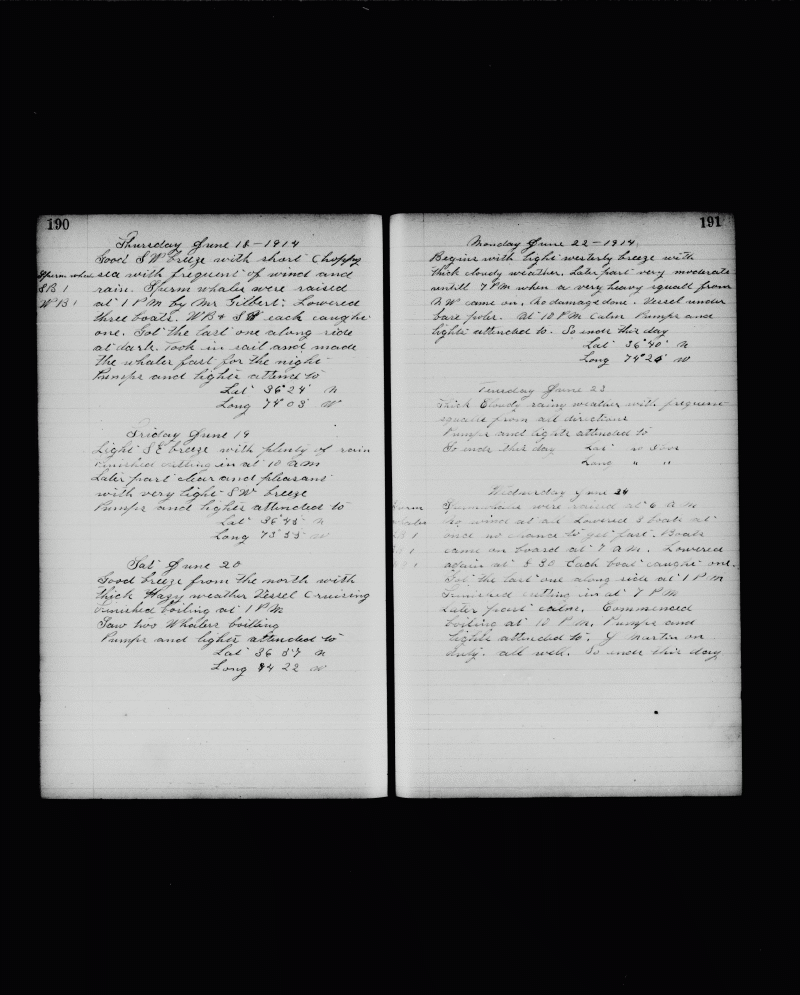 190
Thursday June 18 - 1914
Good SW breeze with short choppy
Sperm whales sea with frequent of wind and
SB 1 rain. Sperm whales were raised
WB 1 at 1 PM by Mr Gilbert: Lowered
three boats. WB & SB each caught
one. Got the last one along side
at dark. Took in sail and made
the whales fast for the night
Pumps and lights attend to
Lat 36° 24' N
Long 74° 03' W
Friday June 19
Light SE breeze with plenty of rain
Finished cutting in at 10 AM
Later part clear and pleasant
with very light SW breeze
Pumps and lights attended to
Lat 36° 43' N
Long 73° 53' W
Sat June 20
Good breeze from the north with
thick Hazy weather Vessel Cruising
Finished boiling at 1 PM
Saw two Whalers boiling
Pumps and lights attended to
Lat 36 57 N
Long 74 22 W
191
Monday June 22 - 1914.
Begins with light westerly breeze with
thick cloudy weather. Later part very moderate
untill 7 PM when a very heavy squall from
NW came on. No damage done. Vessel under
bare poles. At 10 PM Calm Pumps and
lights attended to. So ends this day
Lat 36° 40' N
Long 74° 25' W
Tuesday June 23
Thick Cloudy rainy weather with frequent
squalls from all directions
Pumps and lights attended to
So ends this day Lat no Obs
Long " "
Wednesday June 24
Sperm Sperm whales were raised at 6 AM
whales No wind at all Lowered 3 boats at
1 once no chance to get fast. Boats
1 came on board at 7 AM. Lowered
1 again at 8 30 Each boat caught one.
Got the last one along side at 1 PM
Finished cutting in at 7 PM
Later part calm. Commenced
boiling at 10 PM. Pumps and
lights attended to. J Martin on
duty. all well. So ends this day